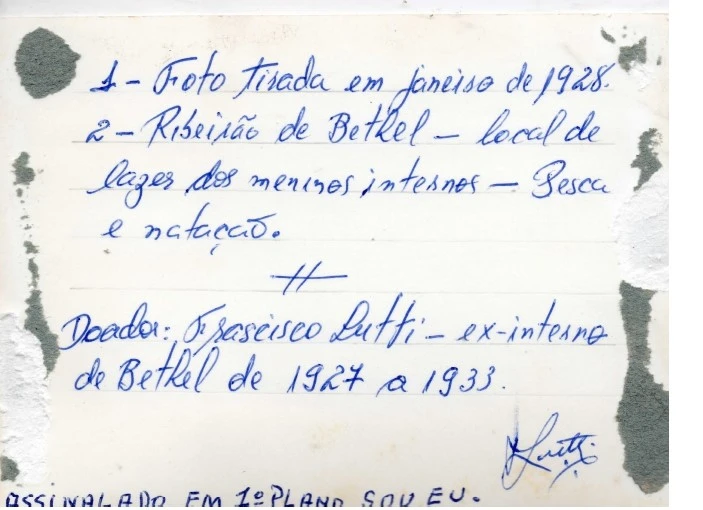 1 - Foto tirada em janeiro de 1928.
2 - Ribeirão de Bethel - local de
lazer dos meninos internos - Pesca
e natação.
Doador: Francisco Lutti - ex-interno
de Bethel de 1927 a 1933.
Lutti
ASSINALADO EM 1º PLANO SOU EU.